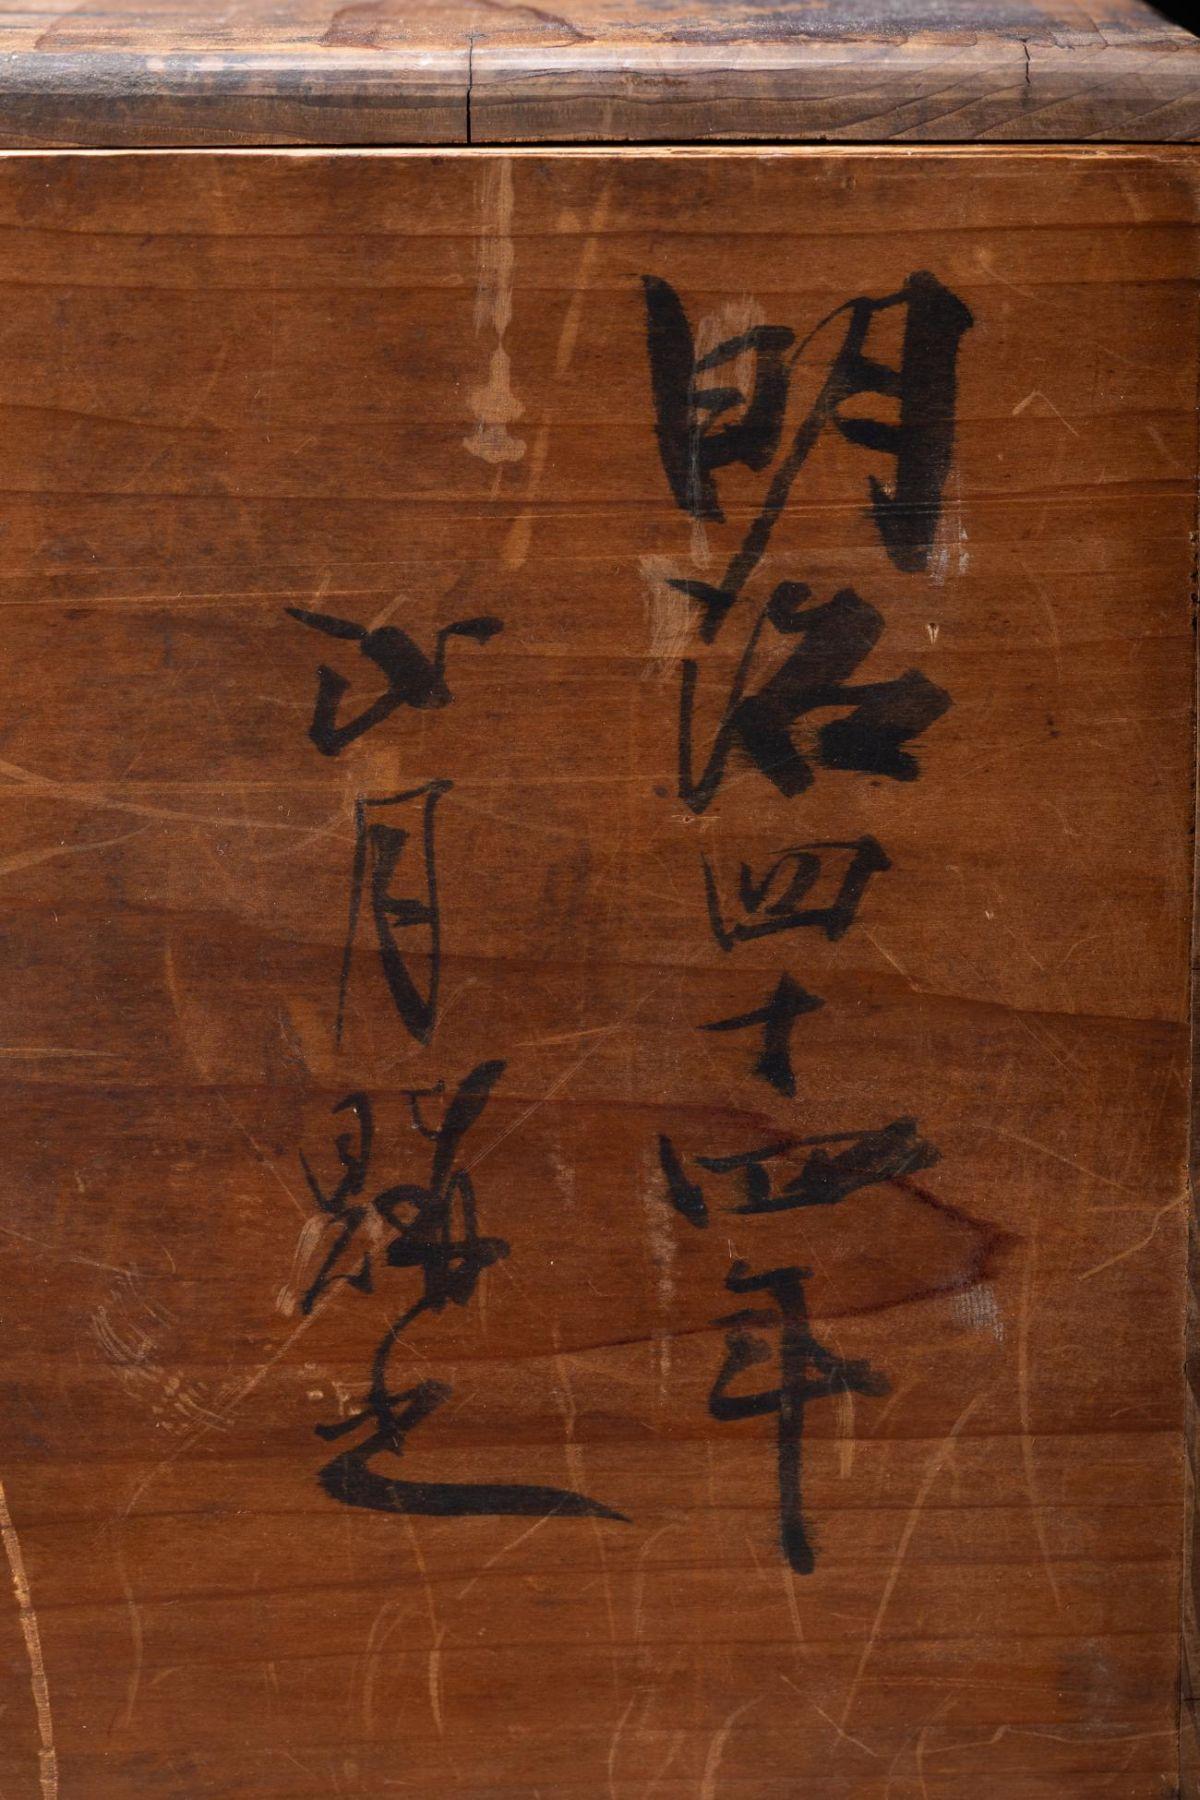 明治四十四年
月購之